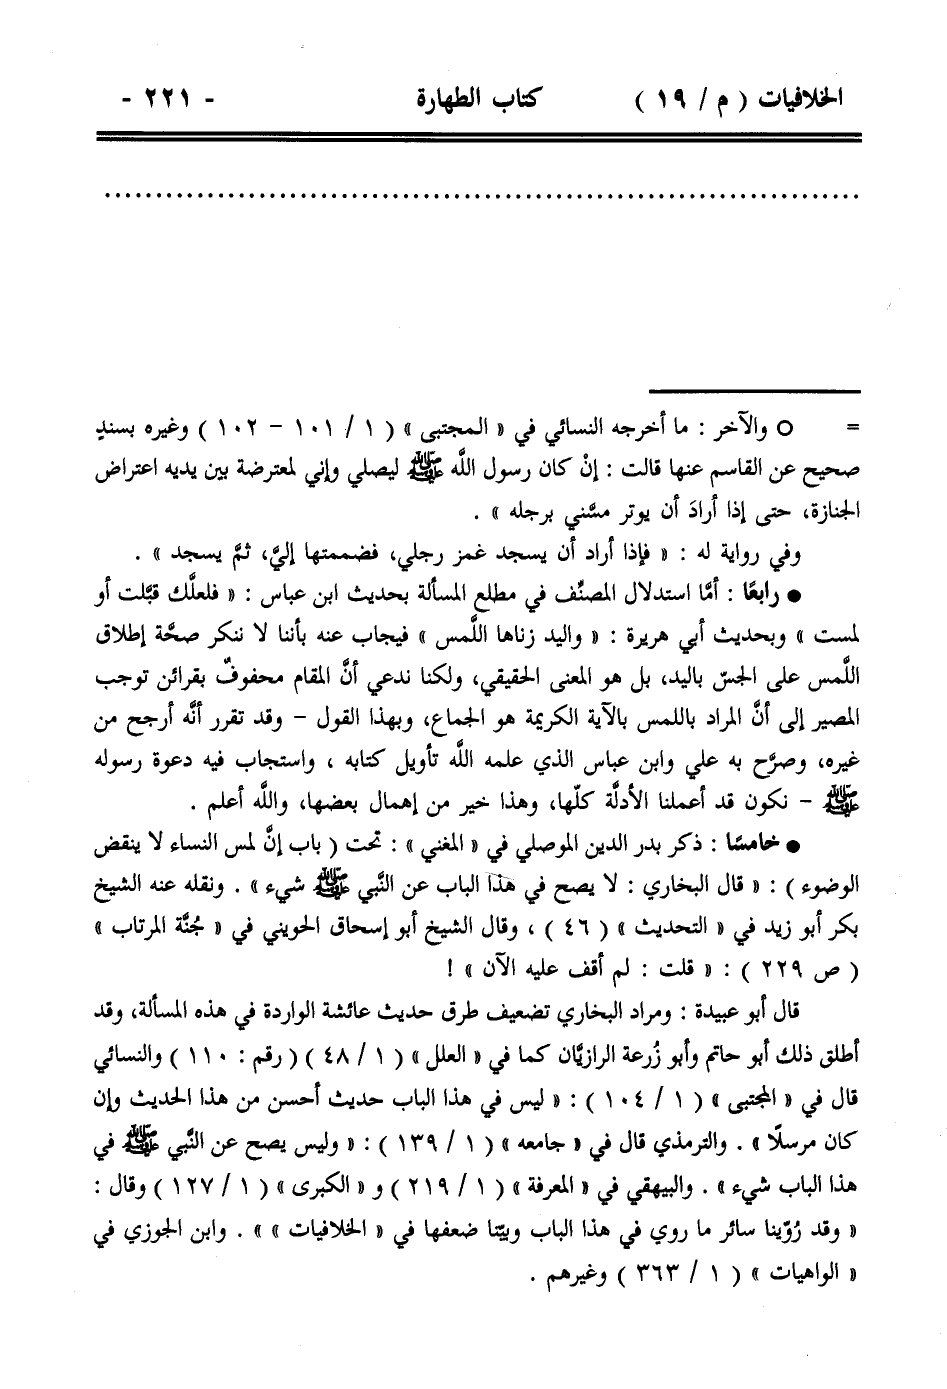 الخلافيات ( م / ١٩ ) كتاب الطهارة - ٢٢١ -
= ○ والآخر : ما أخرجه النسائي في « المجتبى » ( ١ / ١٠١ - ١٠٢ ) وغيره بسندٍ
صحيح عن القاسم عنها قالت : إنْ كان رسول اللَّه ﷺ ليصلي وإني لمعترضة بين يديه اعتراض
الجنازة، حتى إذا أرادَ أن يوتر مسَّني برجله » .
وفي رواية له : « فإذا أراد أن يسجد غمز رجلي، فضممتها إليَّ، ثمَّ يسجد » .
● رابعًا : أمَّا استدلال المصنِّف في مطلع المسألة بحديث ابن عباس : « فلعلَّك قبَّلت أو
لمست » وبحديث أبي هريرة : « واليد زناها اللَّمس » فيجاب عنه بأننا لا ننكر صحَّة إطلاق
اللَّمس على الجسّ باليد، بل هو المعنى الحقيقي، ولكنا ندعي أنَّ المقام محفوفٌ بقرائن توجب
المصير إلى أنَّ المراد باللمس بالآية الكريمة هو الجماع، وبهذا القول - وقد تقرر أنَّه أرجح من
غيره، وصرَّح به علي وابن عباس الذي علمه اللَّه تأويل كتابه ، واستجاب فيه دعوة رسوله
ﷺ - نكون قد أعملنا الأدلَّة كلّها، وهذا خير من إهمال بعضها، واللَّه أعلم .
● خامسًا : ذكر بدر الدين الموصلي في « المغني » : تحت ( باب إنَّ لمس النساء لا ينقض
الوضوء ) : « قال البخاري : لا يصح في هذا الباب عن النَّبي ﷺ شيء » . ونقله عنه الشيخ
بكر أبو زيد في « التحديث » ( ٤٦ ) ، وقال الشيخ أبو إسحاق الحويني في « جُنَّة المرتاب »
( ص ٢٢٩ ) : « قلت : لم أقف عليه الآن » !
قال أبو عبيدة : ومراد البخاري تضعيف طرق حديث عائشة الواردة في هذه المسألة، وقد
أطلق ذلك أبو حاتم وأبو زُرعة الرازيَّان كما في « العلل » ( ١ / ٤٨ ) ( رقم : ١١٠ ) والنسائي
قال في « المجتبى » ( ١ / ١٠٤ ) : « ليس في هذا الباب حديث أحسن من هذا الحديث وإن
كان مرسلًا » . والترمذي قال في « جامعه » ( ١ / ١٣٩ ) : « وليس يصح عن النَّبي ﷺ في
هذا الباب شيء » . والبيهقي في « المعرفة » ( ١ / ٢١٩ ) و « الكبرى » ( ١ / ١٢٧ ) وقال :
« وقد رُوِّينا سائر ما روي في هذا الباب وبيَّنا ضعفها في « الخلافيات » » . وابن الجوزي في
« الواهيات » ( ١ / ٣٦٣ ) وغيرهم .